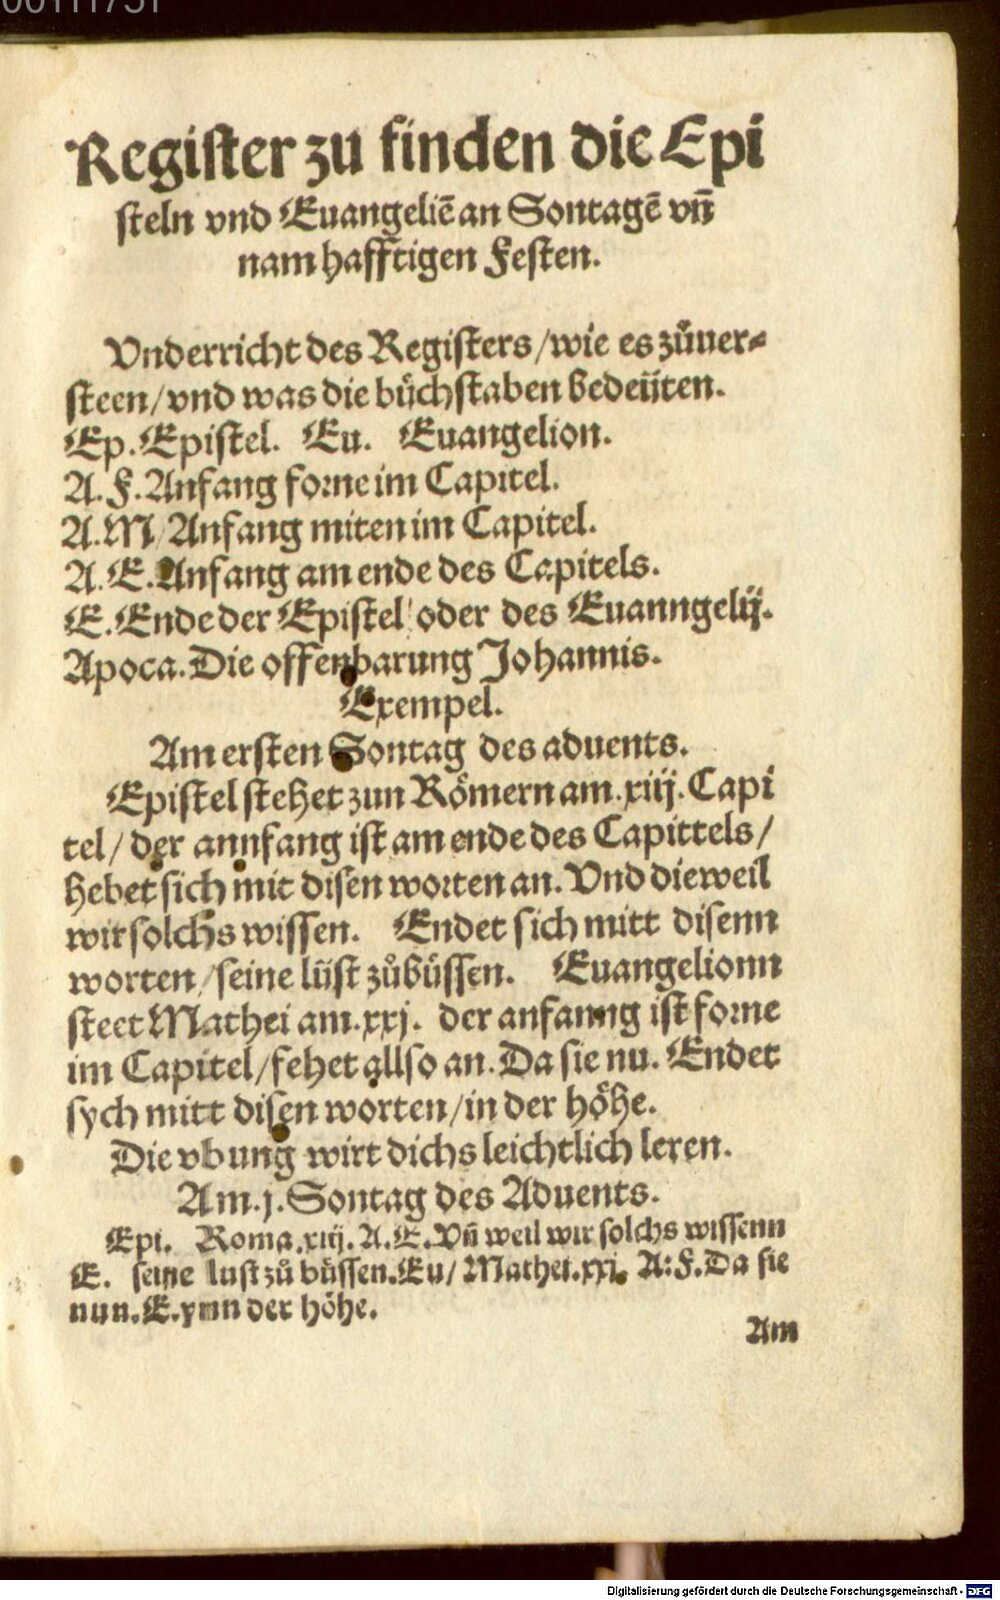 00111731
Register zu finden die Epi
steln vnd Euangeliē an Sontagē vn̄
nam hafftigen Festen.
Vnderricht des Registers/wie es zůuer⸗
steen/vnd was die bůchstaben bedeüten.
Ep. Epistel. Eu. Euangelion.
A. F. Anfang forne im Capitel.
A.M/Anfang miten im Capitel.
A. E. Anfang am ende des Capitels.
E. Ende der Epistel/oder des Euanngelij.
Apoca. Die offenbarung Johannis.
Exempel.
Am ersten Sontag des aduents.
Epistel stehet zun Römern am .xiij. Capi
tel/ der annfang ist am ende des Capittels/
hebet sich mit disen worten an. Vnd dieweil
wir solchs wissen. Endet sich mitt disenn
worten/seine lüst zůbüssen. Euangelionn
steet Mathei am .xxj. der anfanng ist forne
im Capitel/fehet allso an. Da sie nu. Endet
sych mitt disen worten/in der höhe.
Die vbung wirt dichs leichtlich leren.
Am .j. Sontag des Aduents.
Epi. Roma.xiij. A. E. Vn̄ weil wir solchs wissenn
E. seine lust zů büssen. Eu/ Mathei.xxi. A: F. Da sie
nun. E. der höhe.
Am
Digitalisierung gefördert durch die Deutsche Forschungsgemeinschaft - DFG